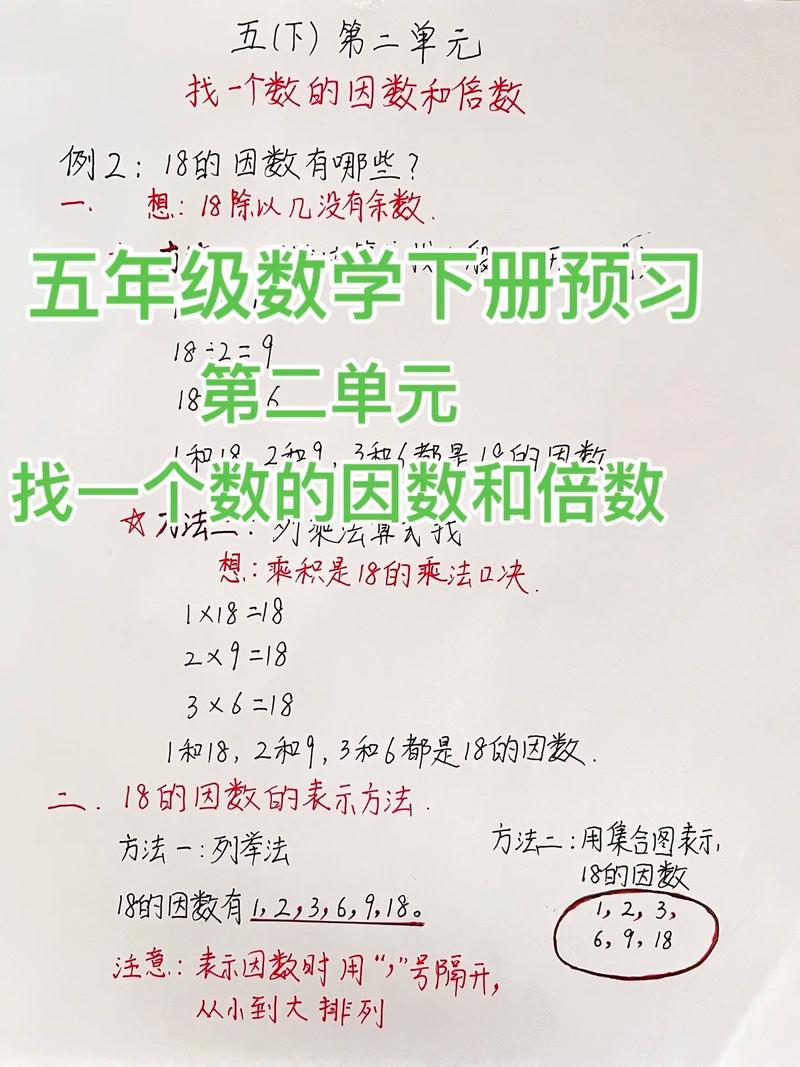 五(下)第二单元
找一个数的因数和倍数
例2：18的因数有哪些？
一. 想：18除以几没有余数.
五年级数学下册预习
18÷2=9
18 6
第二单元
1和18, 2和9, 3和6都是18的因数
找一个数的因数和倍数
☆方法二：列乘法算式找
想：乘积是18的乘法口决.
1×18=18
2×9=18
3×6=18
1和18, 2和9, 3和6都是18的因数.
二. 18的因数的表示方法.
方法一：列举法
18的因数有1,2,3,6,9,18。
注意：表示因数时用“,”号隔开,
从小到大排列
方法二：用集合图表示,
18的因数
1, 2, 3,
6, 9, 18